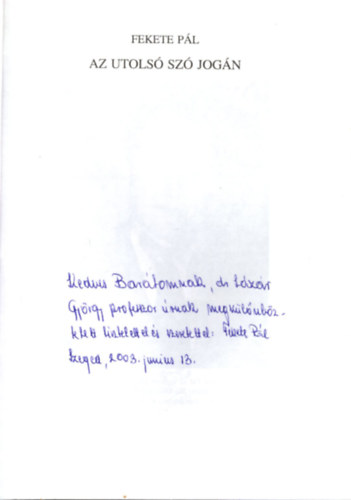 FEKETE PÁL
AZ UTOLSÓ SZÓ JOGÁN
Kedves Barátomnak, dr Lázár
György professzor úrnak megkülönböz-
tetett tisztelettel és szeretettel: Fekete Pál
Szeged, 2003. június 13.